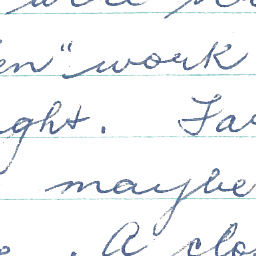 en" work
ght. Far
maybe
. A clo